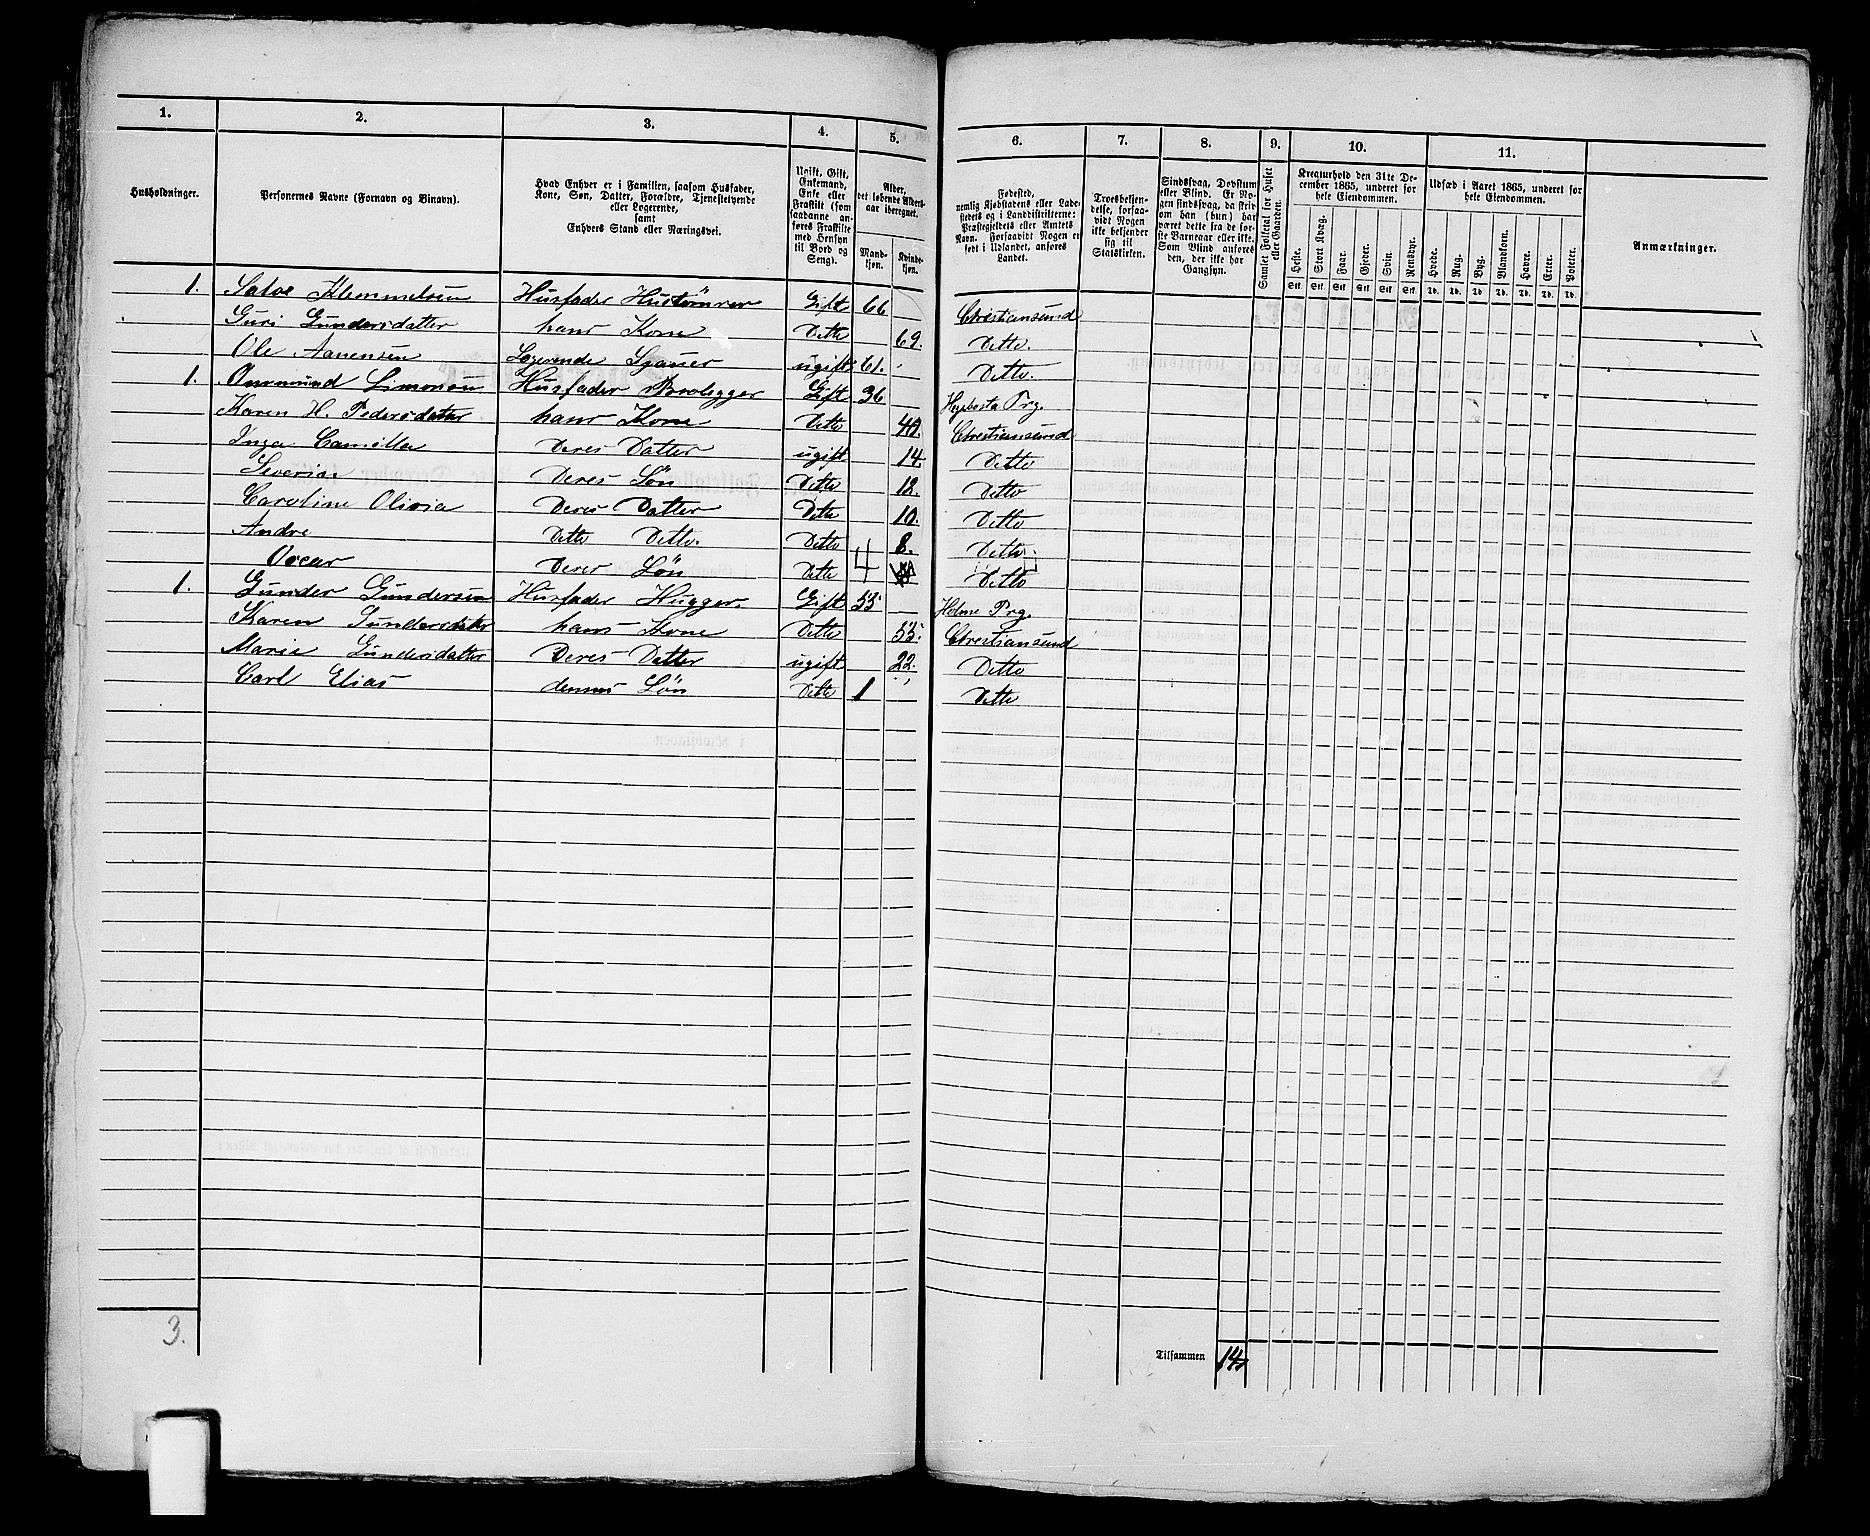 1. 2. 3. 4. 5. 6. 7. 8. 9. 10. 11.
Husholdninger.
Personernes Navne (Fornavn og Binavn).
Hvad Enhver er i Familien, saasom Husfader,
Kone, Søn, Datter, Forældre, Tjenestetyende
eller Logerende,
samt
Enhvers Stand eller Næringsvei.
Ugift, Gift,
Enkemand,
Enke eller
Fraskilt (som
saadanne an-
føres Fraskilte
med Hensyn
til Bord og
Seng).
Alder,
det løbende Alders-
aar iberegnet.
Mand-
kjøn.
Kvinde-
kjøn.
Fødested,
nemlig Kjøbstadens eller Lade-
stedets og i Landdistrikterne:
Præstegjeldets eller Amtets
Navn. Forsaavidt Nogen er
født i Udlandet, anføres
Landet.
Troesbekjen-
delse, forsaa-
vidt Nogen
ikke bekjender
sig til
Statskirken.
Sindssvag, Døvstum
eller Blind. Er No-
gen sindssvag, da skriv
om han (hun) har
været dette fra de før-
ste Barneaar eller ikke.
Som Blind anføres
den, der ikke har
Gangsyn.
Samlet Folketal for Huset
eller Gaarden.
Kreaturhold den 31te De-
cember 1865, underet for
hele Eiendommen.
Heste. Stort Kvæg. Faar. Gjeder. Svin. Rensdyr.
Stk. Stk. Stk. Stk. Stk. Stk.
Udsæd i Aaret 1865, underet for
hele Eiendommen.
Hvede. Rug. Byg. Blandkorn. Havre. Erter. Poteter.
Td. Td. Td. Td. Td. Td. Td.
Anmærkninger.
1. Salve Klemmetsen Husfader Hustømrer Gift 66 Christiansund
Guri Gundersdatter hans Kone Ditto 69. Ditto
Ole Aanensen Logerende Sjauer ugift 61. Ditto.
1. Ommund Simonsen Husfader Brolegger Gift 36 Prg.
Karen H. Pedersdatter hans Kone Ditto 40. Christiansund
Inga Camilla Deres Datter ugift 14. Ditto
Severin Deres Søn Ditto 12. Ditto
Caroline Olivia Deres Datter Ditto 10. Ditto
Andre Ditto Ditto. Ditto 8. Ditto.
Oscar Deres Søn Ditto 4 Ditto
1. Gunder Gundersen Husfader Hugger. Gift 53 Holme Prg.
Karen Gundersdatter hans Kone Ditto 55. Christiansund
Marie Gundersdatter Deres Datter ugift 22. Ditto
Carl Elias dennes Søn Ditto 1 Ditto
3.
Tilsammen 14